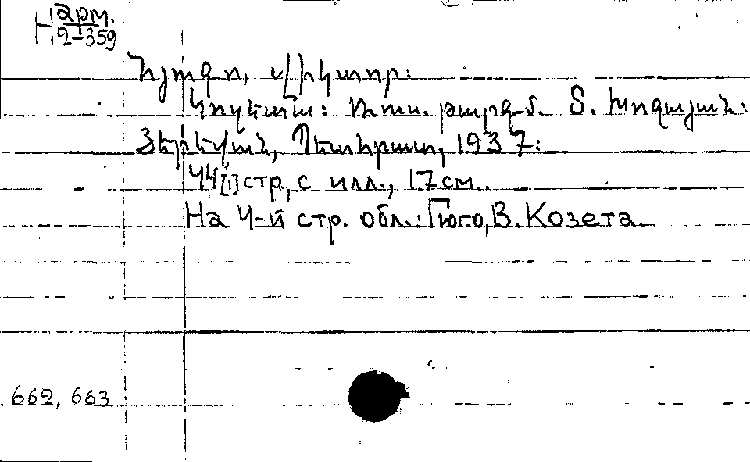 Н арм.
2-359
Հյուգո, Վիկտոր:
Կոզետա: Ռուս. թարգմ. Տ. Խոզայան:
Յերեվան, Պետհրատ, 1937:
44[1] стр, с илл., 17 см.
На 4-й стр. обл.: Гюго, В. Козета.
662, 663